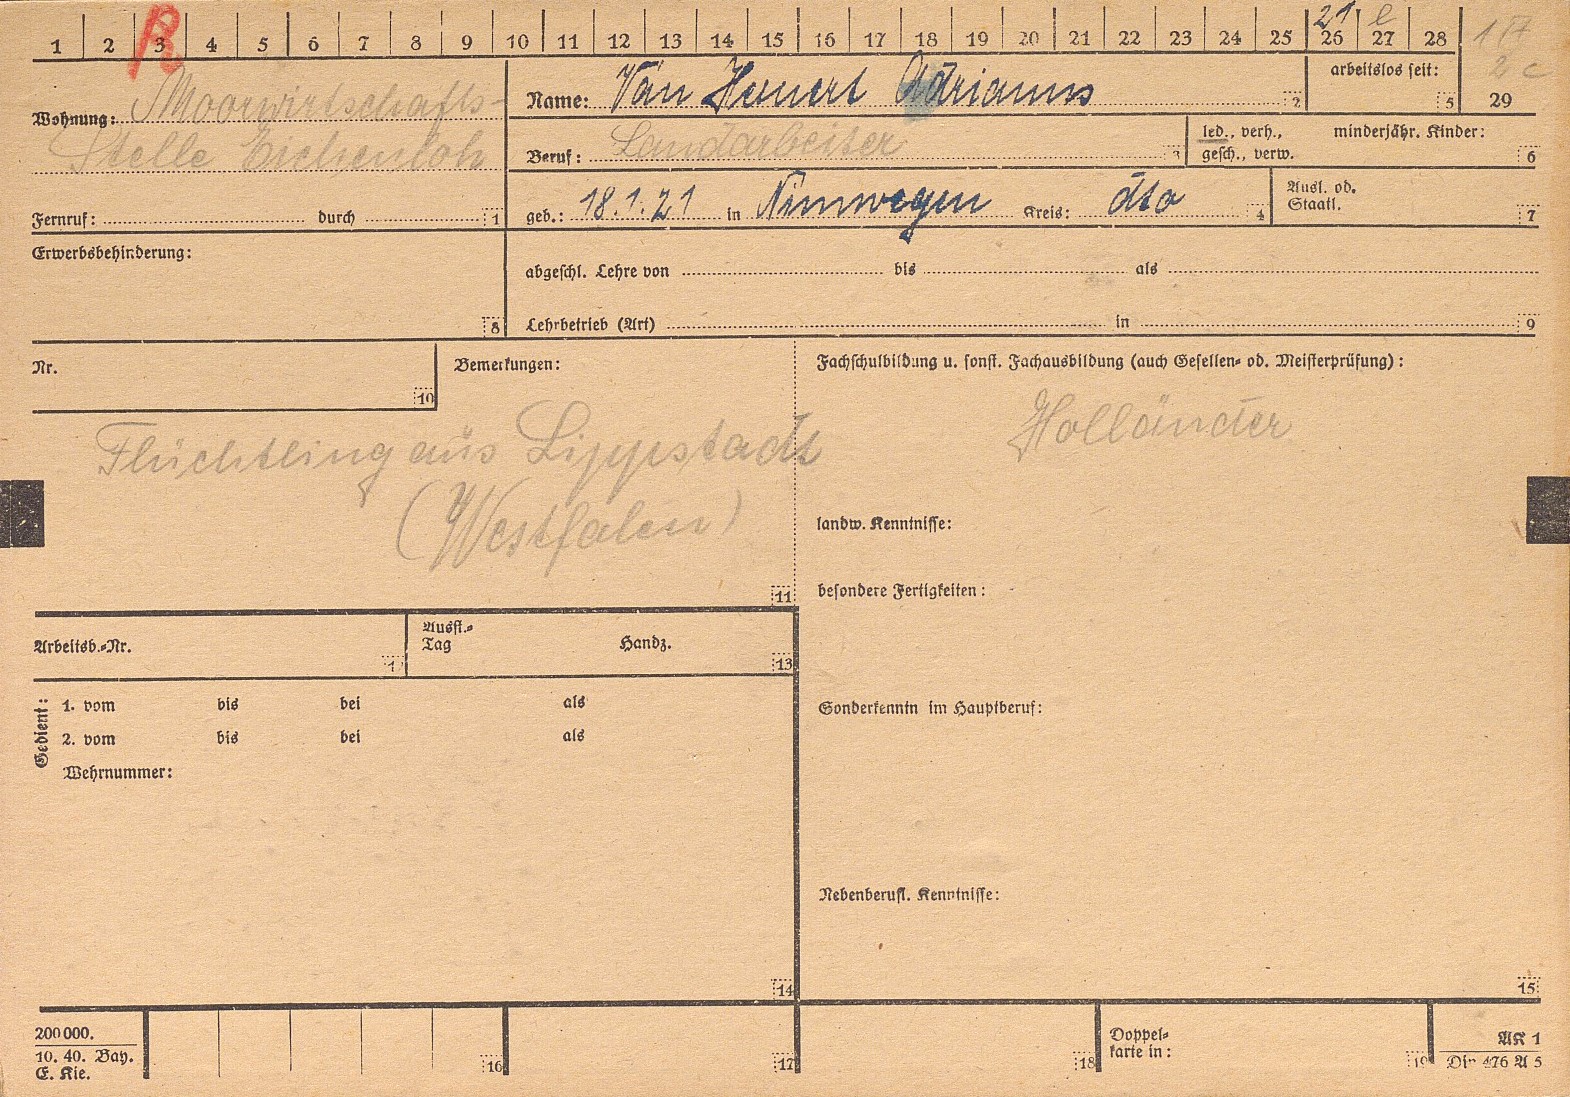 1 2 3 4 5 6 7 8 9 10 11 12 13 14 15 16 17 18 19 20 21 22 23 24 25 26 27 28
21 e
2 c
29
Wohnung: Moorwirtschafts-
Stelle Eichenloh
Fernruf: durch 1
Name: Van Heuert Adrianus 2
arbeitslos seit: 5
Beruf: Landarbeiter 3
led., verh., minderjähr. Kinder:
gesch., verw. 6
geb.: 18.1.21 in Nimwegen Kreis: dto 4
Ausl. od.
Staatl. 7
Erwerbsbehinderung: 8
abgeschl. Lehre von bis als
Lehrbetrieb (Art) in 9
Nr. 10
Bemerkungen:
Flüchtling aus Lippstadt
(Westfalen)
11
Fachschulbildung u. sonst. Fachausbildung (auch Gesellen- od. Meisterprüfung):
Holländer
landw. Kenntnisse:
besondere Fertigkeiten:
Arbeitsb.-Nr. 12
Ausst.-
Tag Handz. 13
Gedient:
1. vom bis bei als
2. vom bis bei als
Wehrnummer:
14
Sonderkenntn im Hauptberuf:
Nebenberufl. Kenntnisse:
15
200 000.
10. 40. Bay.
E. Kie.
16
17
18
Doppel-
karte in: 19
AK 1
Din 476 A 5